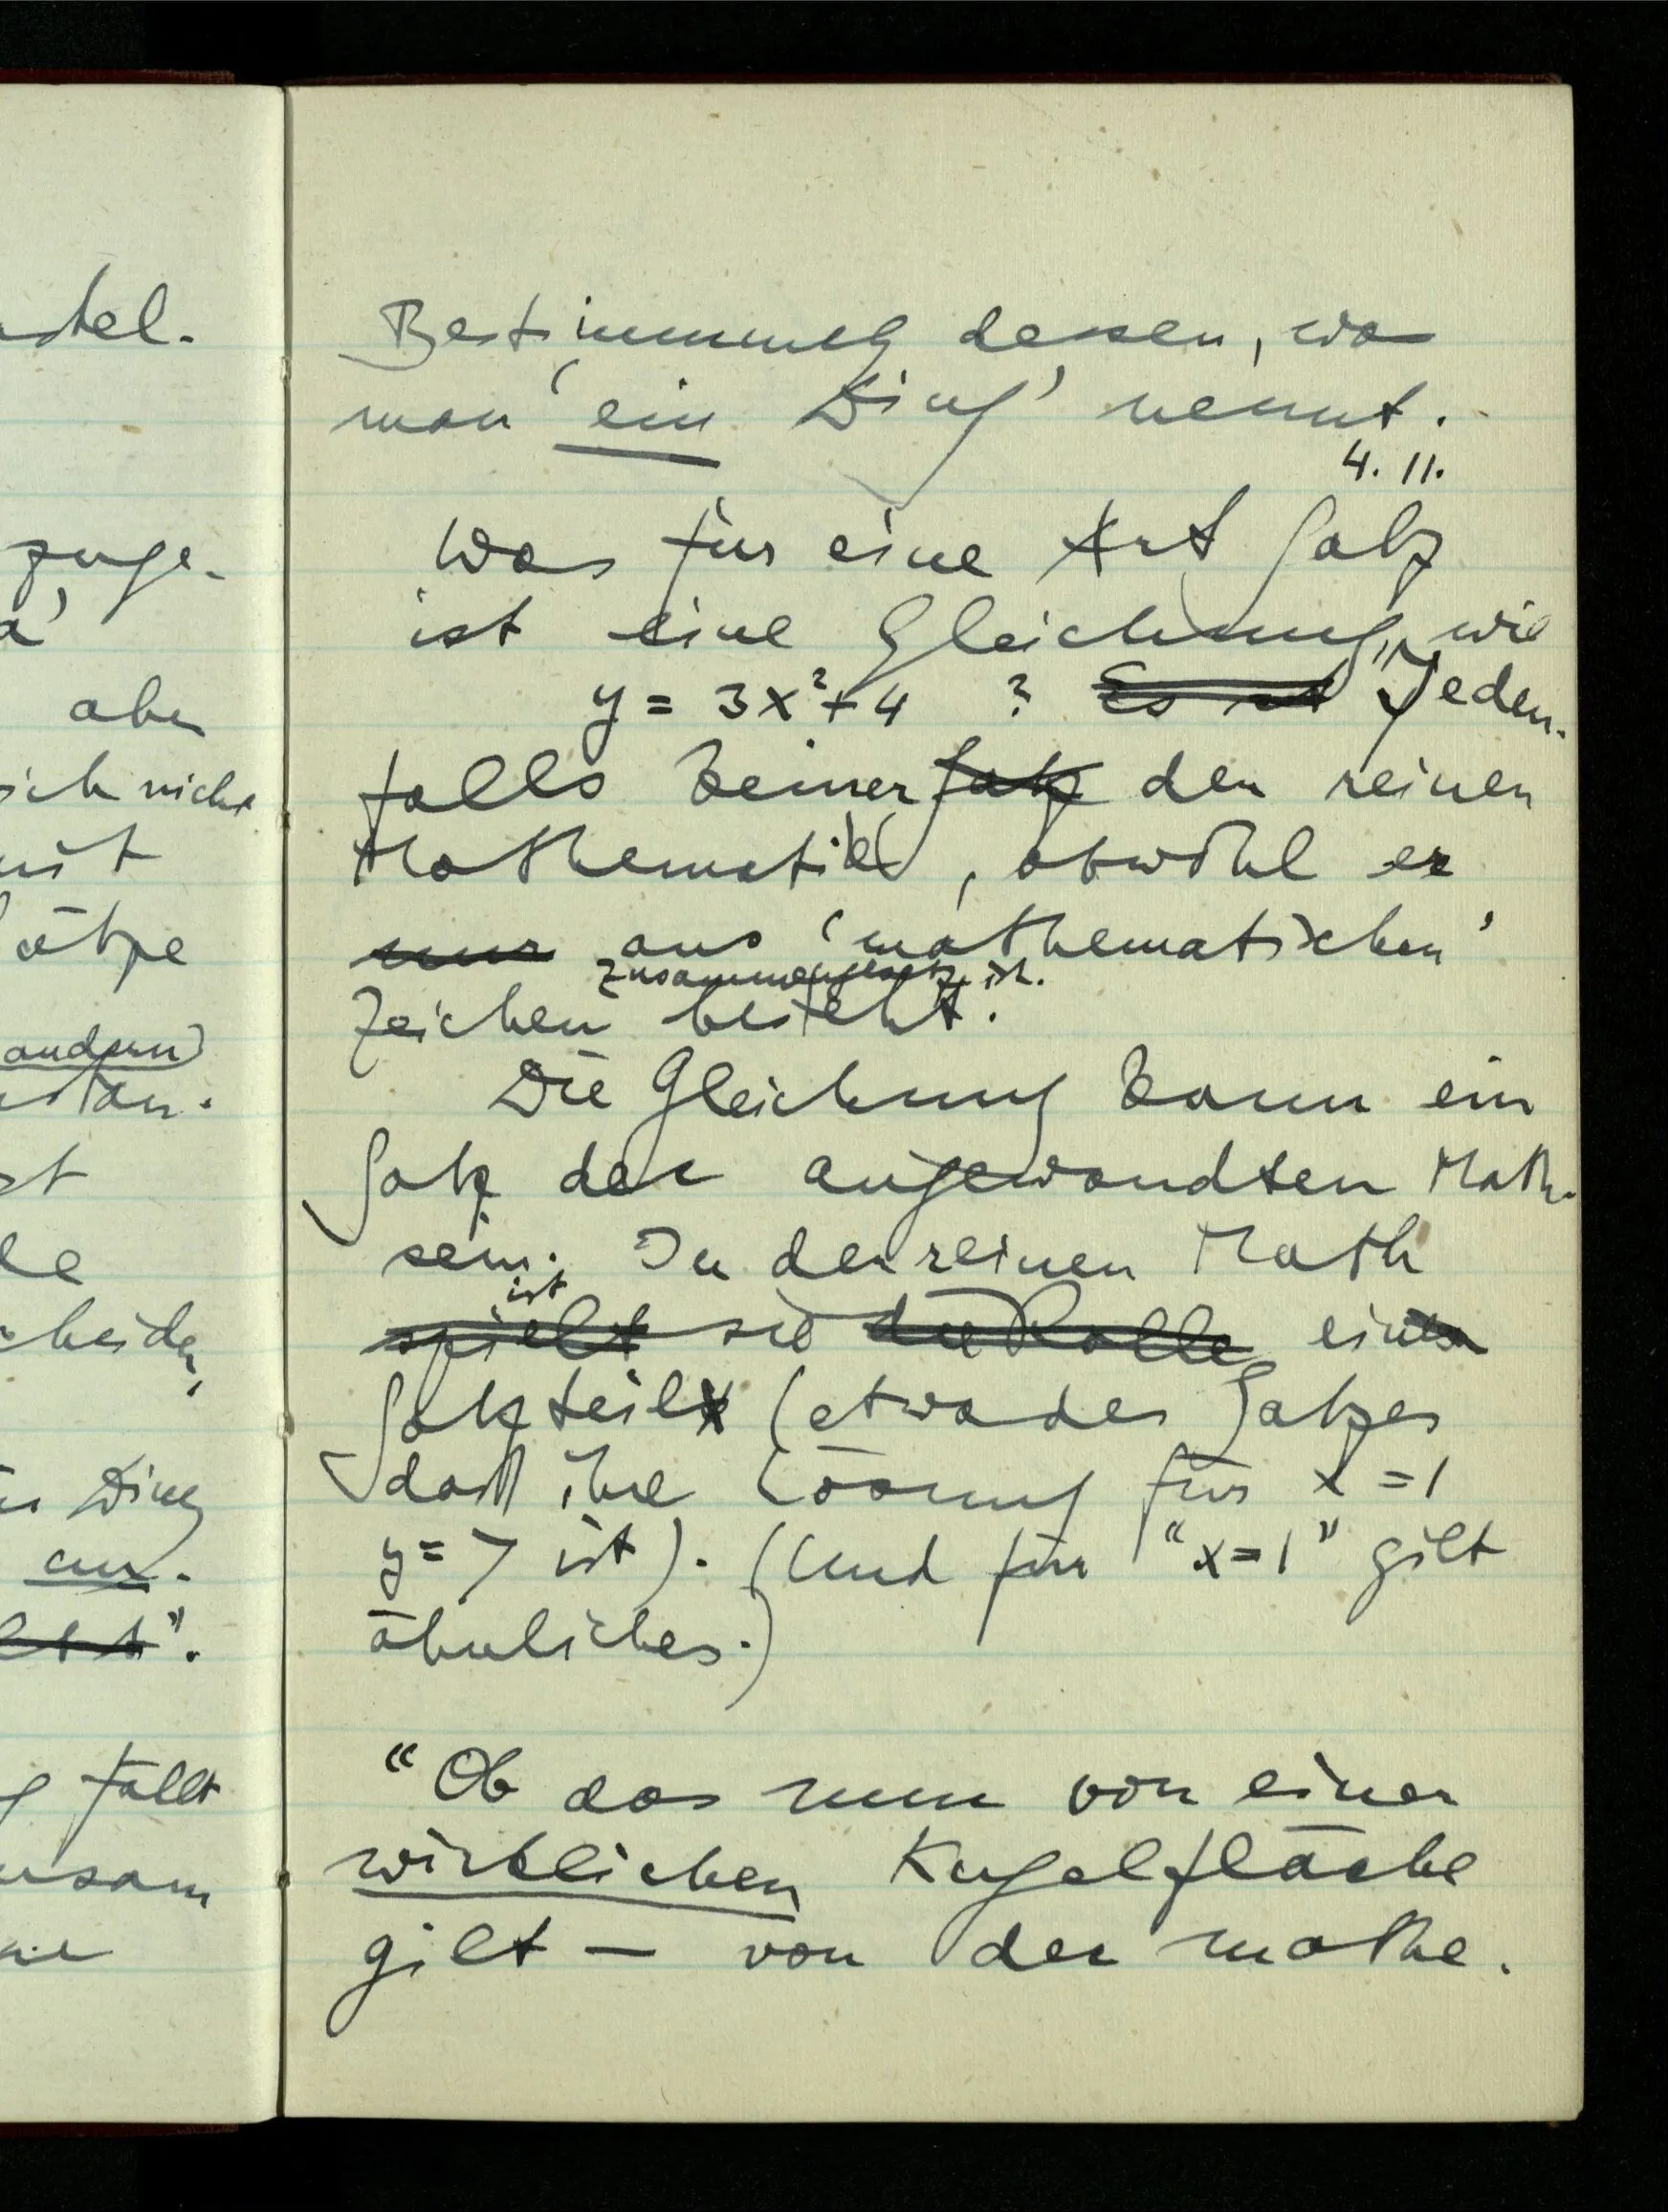 stel.
zuge-
a'
aber
sich nicht
mit
Sätze
andern
ist
cheiden,
Ding
an.
".
fällt
Bestimmung dessen, was
man 'ein Ding' nennt.
4. 11.
Was für eine Art Satz
ist eine Gleichung, wie
y = 3x²+4 ? Es ist Jeden-
falls keiner Satz der reinen
Mathematik, obwohl er
nur aus 'mathematischen'
zusammengesetzt ist.
Zeichen besteht.
Die Gleichung kann ein
Satz der angewandten Math.
sein. In der reinen Math
ist
spielt sie die Rolle ein
Satzteil (etwa des Satzes
daß ihre Lösung für x=1
y=7 ist). (Und für "x=1" gilt
ähnliches.)
"Ob das nun von einer
wirklichen Kugelfläche
gilt — von der mathe-